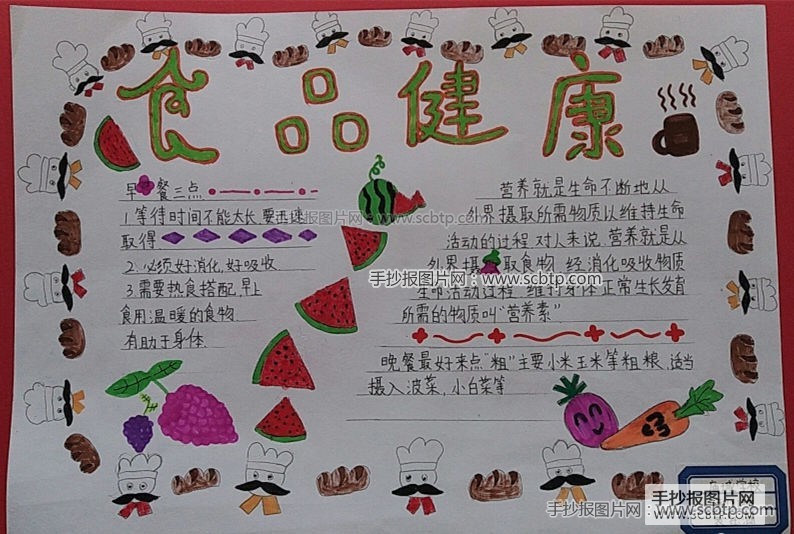 食品健康
早餐三点
1.等待时间不能太长,要迅速
取得
2.必须好消化,好吸收
3.需要热食搭配,早上
食用温暖的食物
有助于身体
营养就是生命不断地从
外界摄取所需物质以维持生命
活动的过程,对人来说,营养就是从
外界摄取食物,经消化吸收物质
生命活动过程 维持身体正常生长发育
所需的物质叫“营养素”
晚餐最好来点“粗”主要小米玉米等粗粮,适当
摄入菠菜,小白菜等
手抄报图片网:www.scbtp.com
手抄报图片网:www.scbtp.com
手抄报图片网:
手抄报图片网
WWW.SCBTP.COM